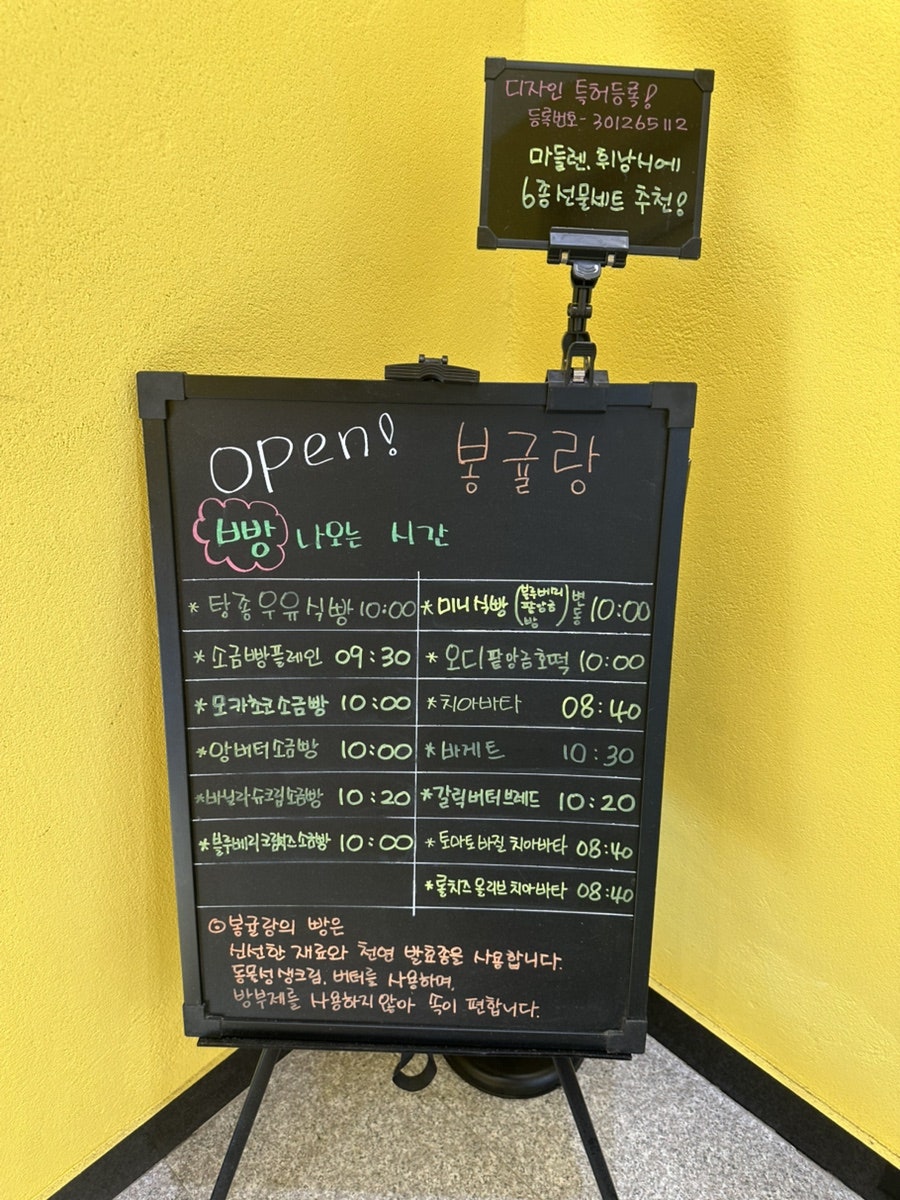 디자인 특허등록!
등록번호- 301265112
마들렌, 휘낭시에
6종 선물세트 추천!
open! 봉귤랑
빵 나오는 시간
* 탕종우유식빵 10:00
* 소금빵플레인 09:30
* 모카초코소금빵 10:00
* 앙버터소금빵 10:00
* 바닐라슈크림소금빵 10:20
* 블루베리크림치즈소금빵 10:00
* 미니식빵 (블루베리 팥앙금 밤) 변동 10:00
* 오디팥앙금호떡 10:00
* 치아바타 08:40
* 바게트 10:30
* 갈릭버터브레드 10:20
* 토마토바질 치아바타 08:40
* 롤치즈올리브치아바타 08:40
⊙ 봉귤랑의 빵은
신선한 재료와 천연 발효종을 사용합니다.
동물성생크림, 버터를 사용하며,
방부제를 사용하지 않아 속이 편합니다.